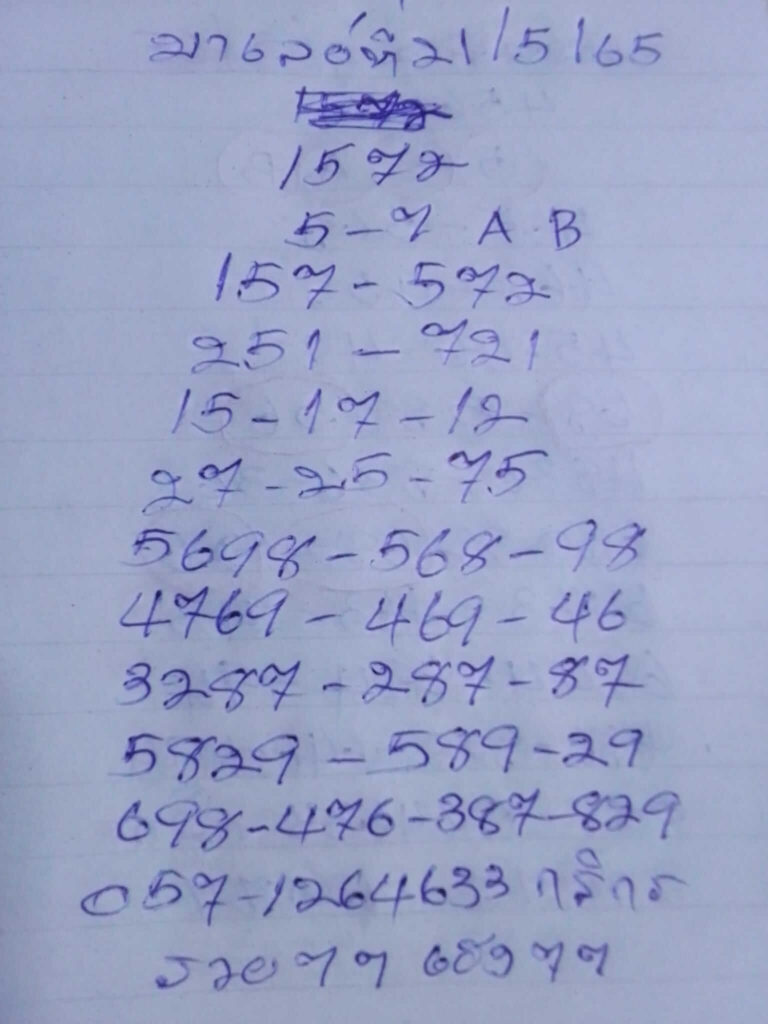 มาเลย์ที่ 21/5/65
1572
5-7 A B
157-572
251-721
15-17-12
27-25-75
5698-568-98
4769-469-46
3287-287-87
5829-589-29
698-476-387-829
057-1264633
รวยๆๆ เฮงๆๆ